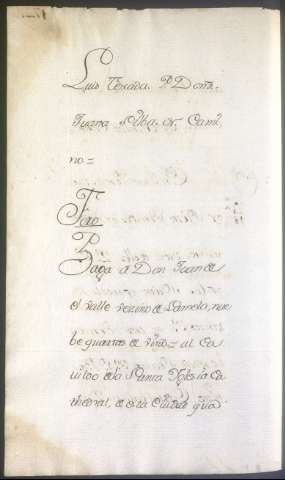 Luis texada. P. Domi.
Juana Alba. or Cami
no =
Tiro
P
Paga a Don Juan de
el Valle vezino de Laredo, nue
be quartos de vino = al Ca
uildo dela Santa Yglesia Ca
thedral, de esta Ciudad